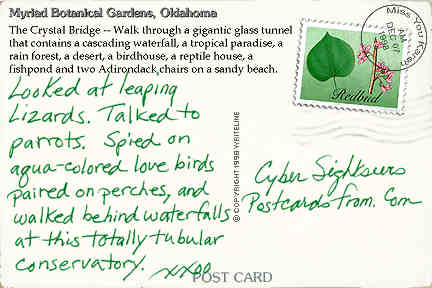 Myriad Botanical Gardens, Oklahoma
The Crystal Bridge -- Walk through a gigantic glass tunnel
that contains a cascading waterfall, a tropical paradise, a
rain forest, a desert, a birdhouse, a reptile house, a
fishpond and two Adirondack chairs on a sandy beach.
Looked at leaping
Lizards. Talked to
parrots. Spied on
aqua-colored love birds
paired on perches, and
walked behind waterfalls
at this totally tubular
conservatory. xxoo
© COPYRIGHT 1998 WRITELINE
Miss You Karen
AM
DEC 07
1998
Redbud
Cyber Sightseers
Postcards From. Com
POST CARD